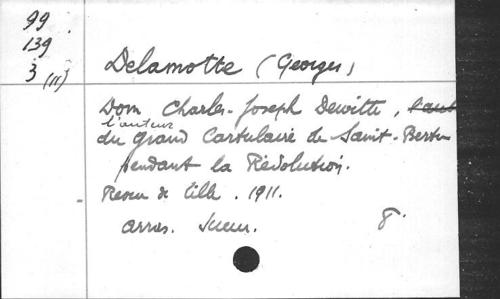 99
139
3 (11)
Delamotte (Georges)
Dom Charles-Joseph Dewitte,
l'auteur
du grand Cartulaire de Saint-Bertin
pendant la Révolution.
Revue de Lille. 1911.
Arras. Sueur. 8°.